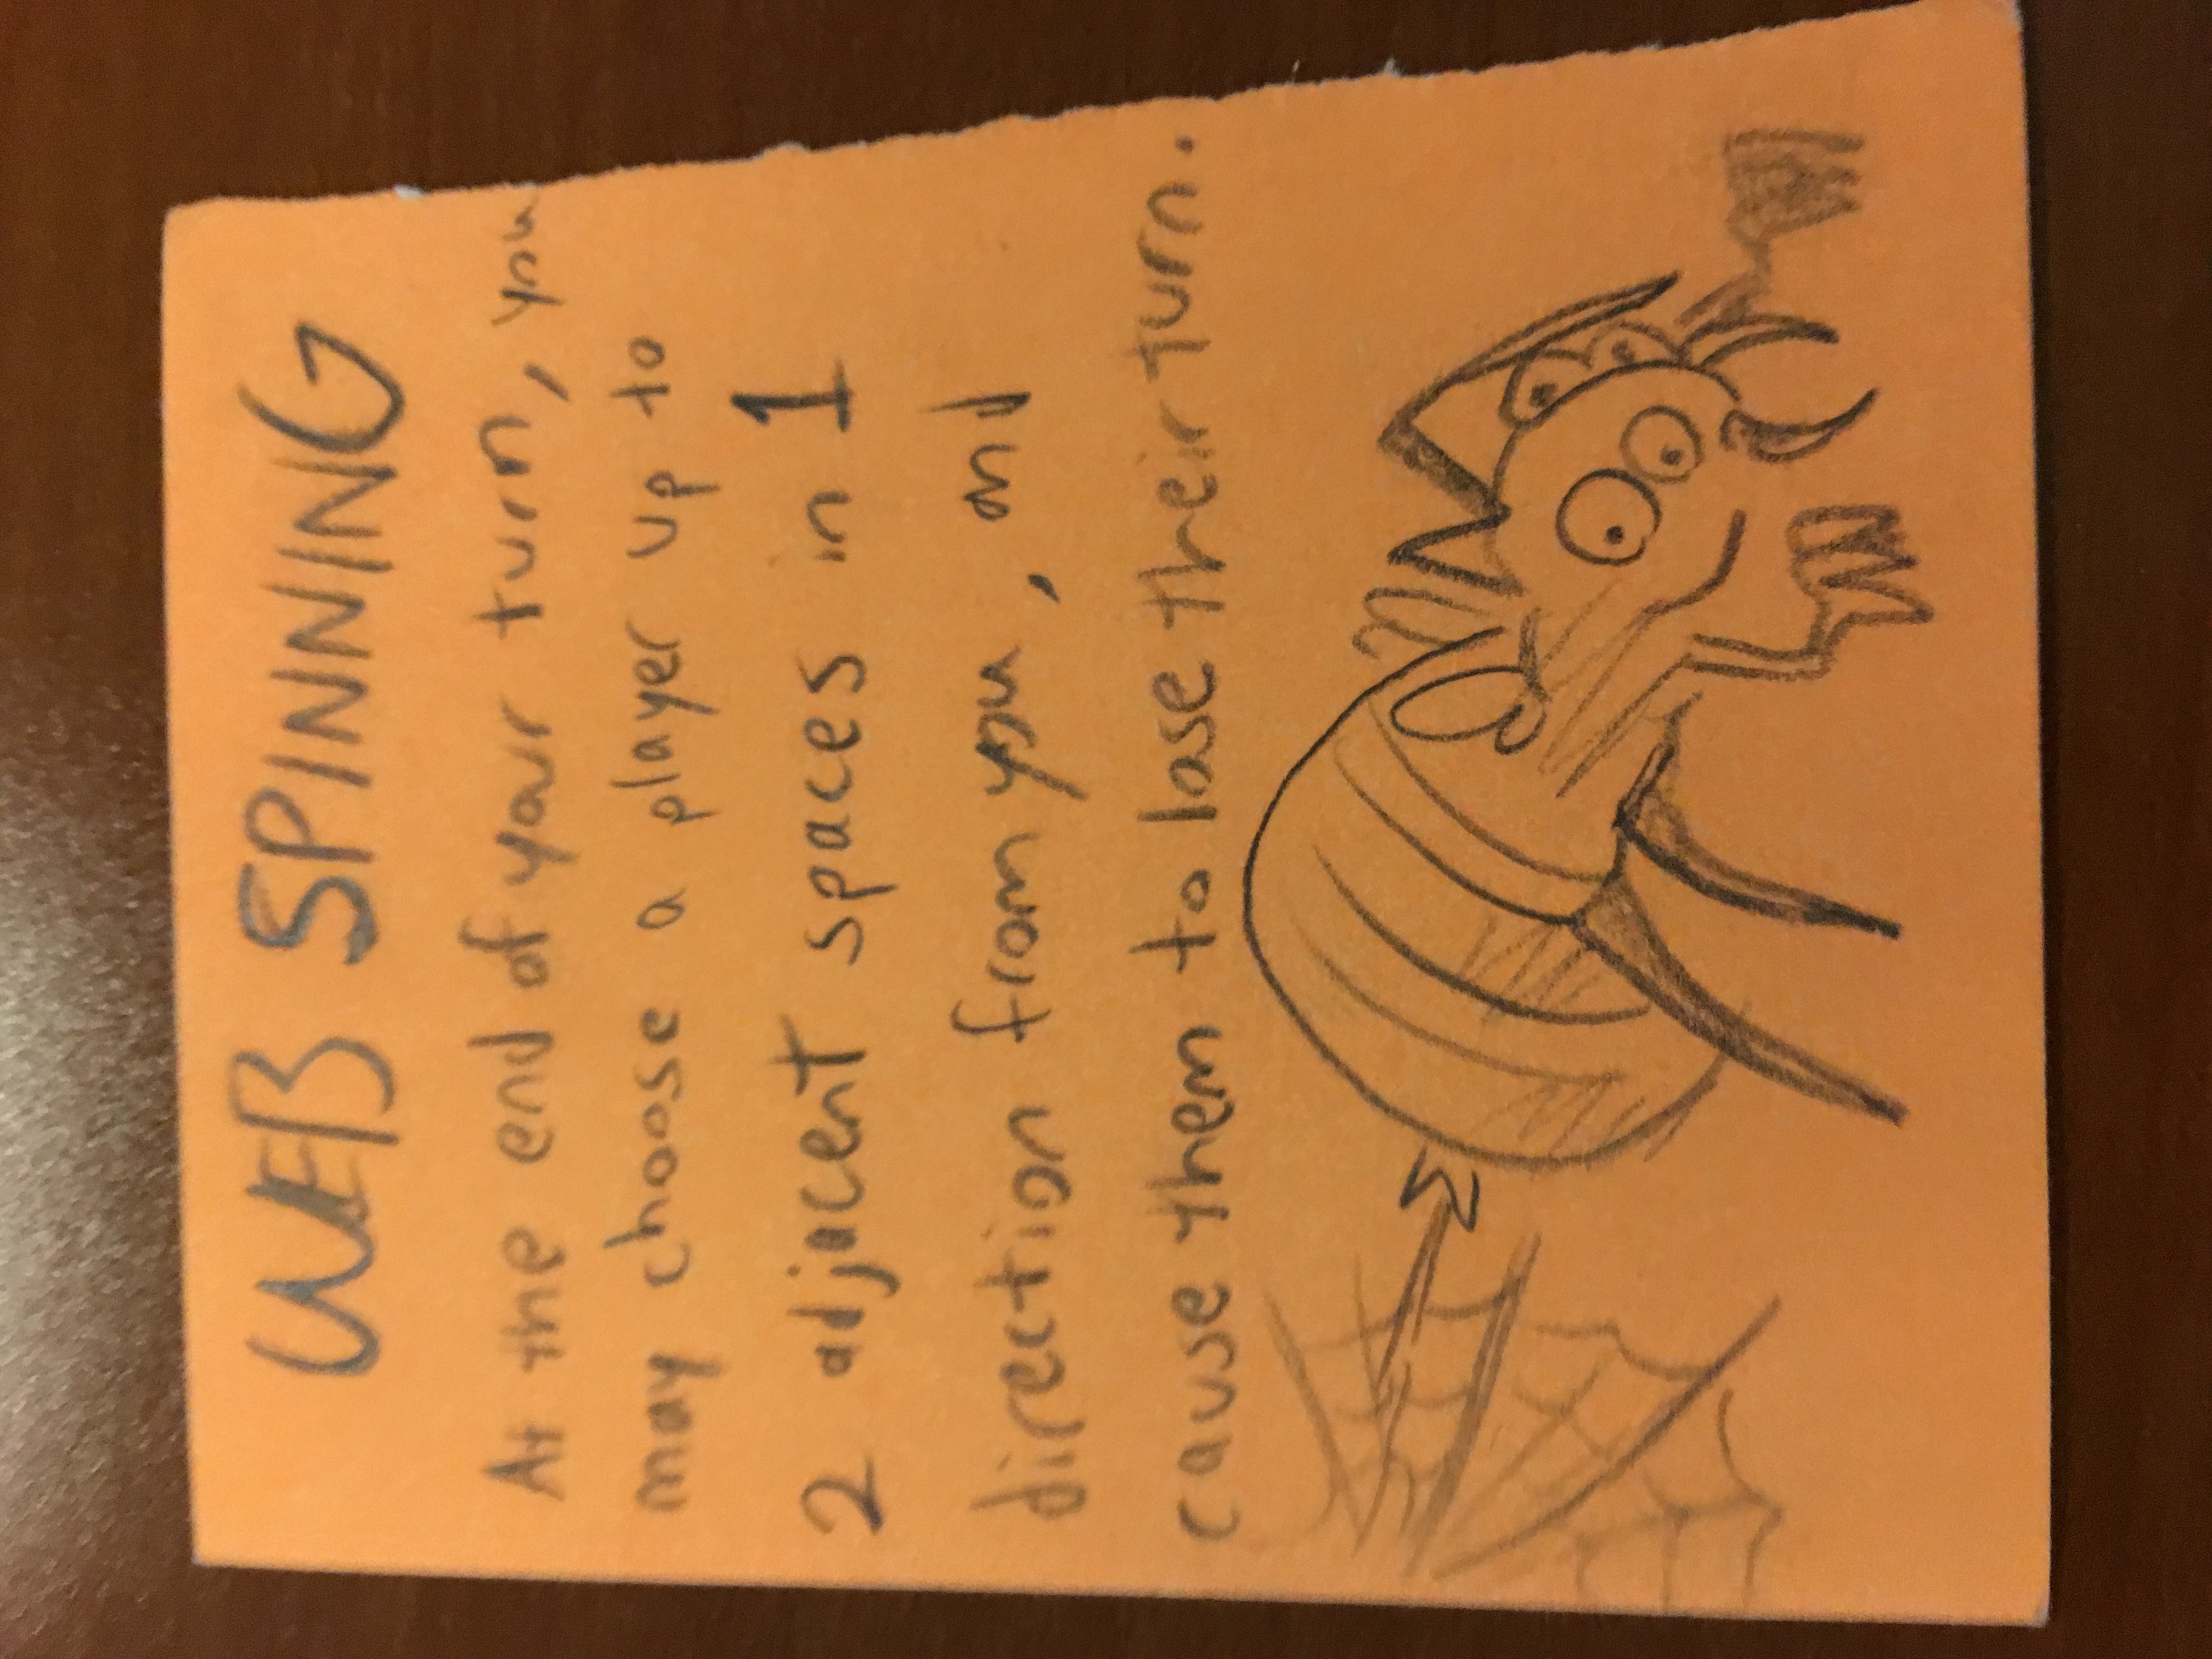 WEB SPINNING
At the end of your turn, you
may choose a player up to
2 adjacent spaces in 1
direction from you, and
cause them to lose their turn.